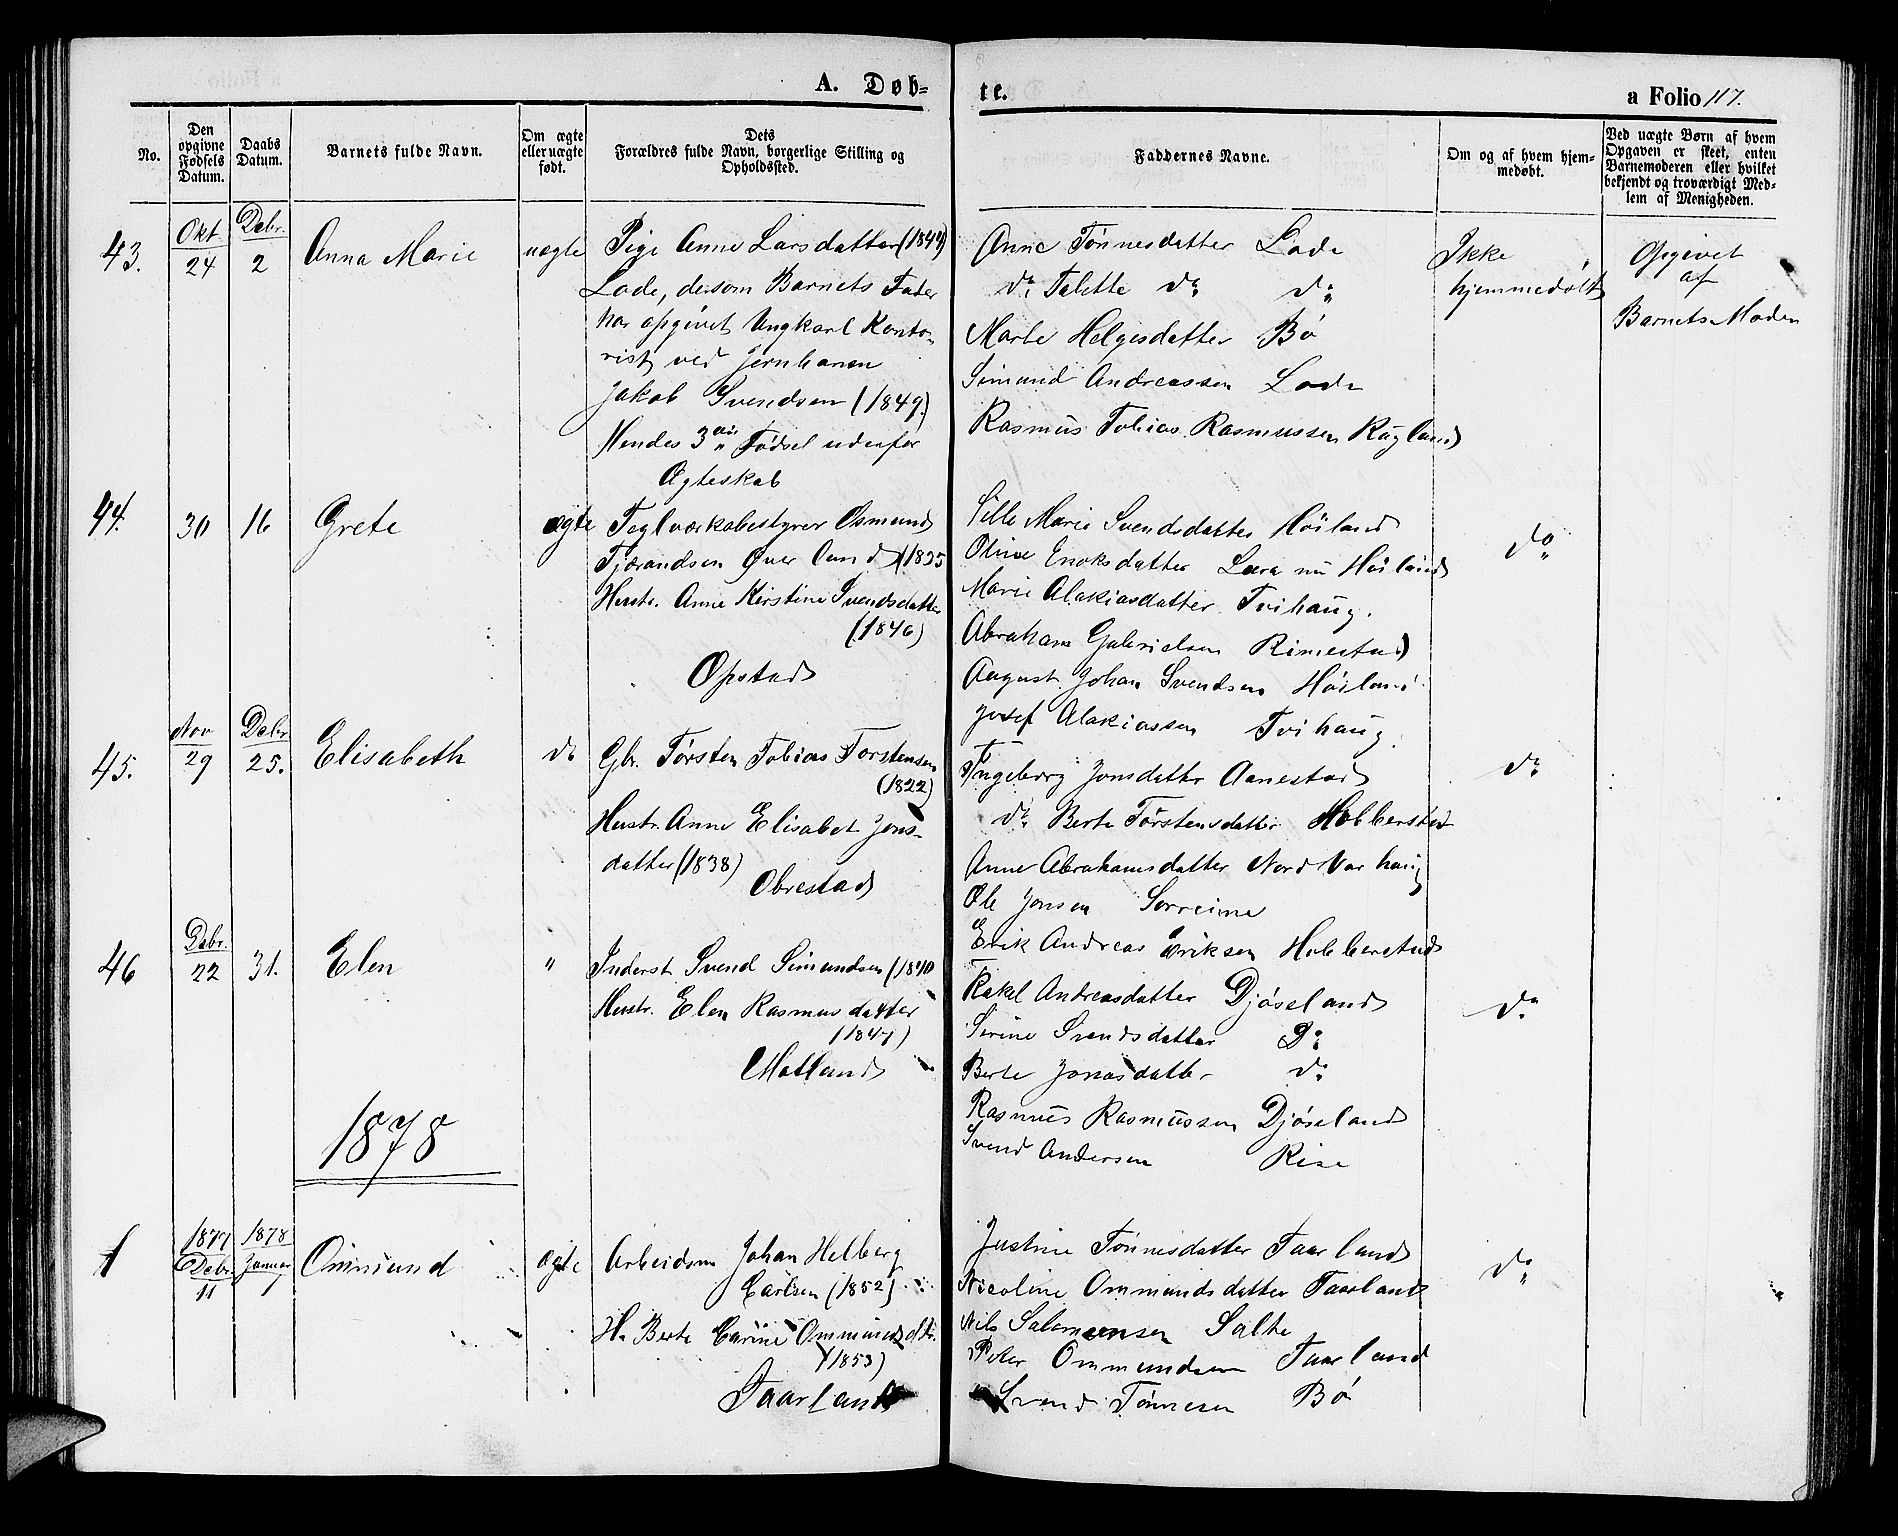 A. Døb-
te.
a Folio 117.
No.
Den opgivne Fødsels Datum.
Daabs Datum.
Barnets fulde Navn.
Om ægte eller uægte født.
Dets Forældres fulde Navn, borgerlige Stilling og Opholdssted.
Faddernes Navne.
Om og af hvem hjemmedøbt.
Ved uægte Børn af hvem Opgaven er skeet, enten Barnemoderen eller hvilket bekjendt og troværdigt Medlem af Menigheden.
43.
Okt 24
Debr. 2
Anna Marie
uægte
Pige Anne Larsdatter
Lode, desom Barnets Fader
har opgivet Ungkarl Konto-
rist ved Jernbanen
Jakob Svendsen (1849)
Hendes 3die Fødsel udenfor
Ægteskab
Anne Tönnesdatter Lode
do Talette do do
Marte Helgesdatter Bö
Simund Andreassen Lode
Rasmus Tobias Rasmussen Rugland
Ikke
hjemmedøbt
Opgivet
af
Barnets Moder
44.
30
16
Grete
ægte
Teglværksbestyrer Osmund
Tjerandsen Øver (1835
Hustr. Anne Kirstine Svendsdatter
(1846)
Opstad
Sille Marie Svendsdatter Höiland
Oline Enoksdatter Höiland
Marie Alakiasdatter Tvihaug.
Abraham Gabrielsen Rimestad
August Johan Svendsen Höiland
Josef Alakiassen Tvihaug.
do
45.
Nov 29
Debr 25.
Elisabeth
do
Gbr. Tørsten Tobias Torstensen
(1822)
Hustr. Anne Elisabet Jons-
datter (1838)
Obrestad
Ingeborg Jonsdatter Aanestad
do Berte Törstensdatter Hobberstad
Anne Abrahamsdatter Nord Varhaug
Ole Jonsen Sörreime
Erik Andreas Eriksen Hobberstad
do
46
Debr. 22
31.
Elen
"
Inderst Svend Simundsen (1840
Hustr. Elen Rasmusdatter
(1847)
Motland
Rakel Andreasdatter Djöseland
Serine Svendsdatter Do
Berte Jonasdatter do
Rasmus Rasmussen Djöseland
Svend Andersen Rise
do
1878
1
1877 Debr 11
1878 Januar 1
Ommund
ægte
Arbeidsm Johan Helberg
Carlsen (1852)
H. Berte Carine Ommundsdtr.
(1853)
Taarland
Justine Tönnesdatter Taarland
Nicoline Ommundsdatter Taarland
Nils Salomonsen Salte
Peter Ommundsen Taarland
Svend Tönnesen Bö
do